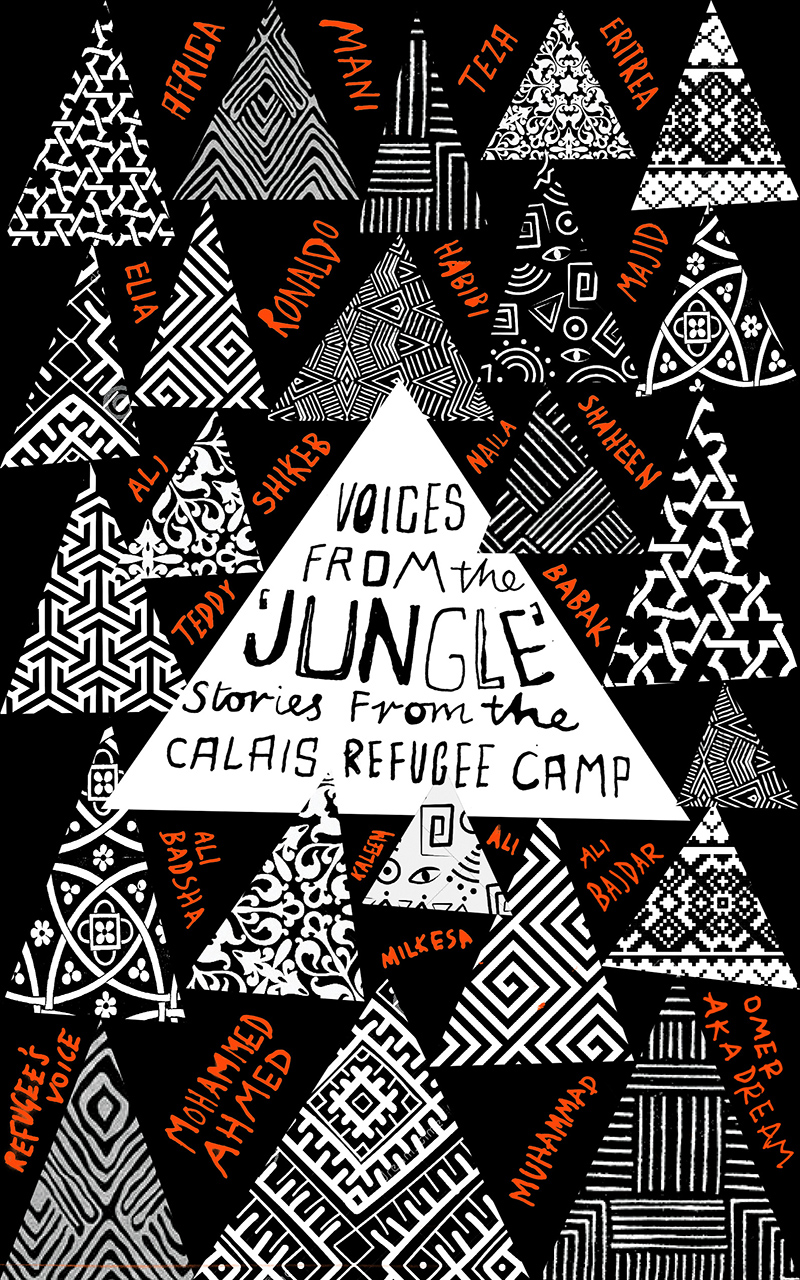 AFRICA
MANI
TEZA
ERITREA
ELIA
RONALDO
HABIBI
MAJID
ALI
SHIKEB
NAILA
SHAHEEN
TEDDY
BABAK
VOICES
FROM the
'JUNGLE'
Stories From the
CALAIS REFUGEE CAMP
ALI
BADSHA
KALEEM
ALI
ALI
BAJDAR
MILKESA
REFUGEE'S
VOICE
MOHAMMED
AHMED
MUHAMMAD
OMER
AKA DREAM